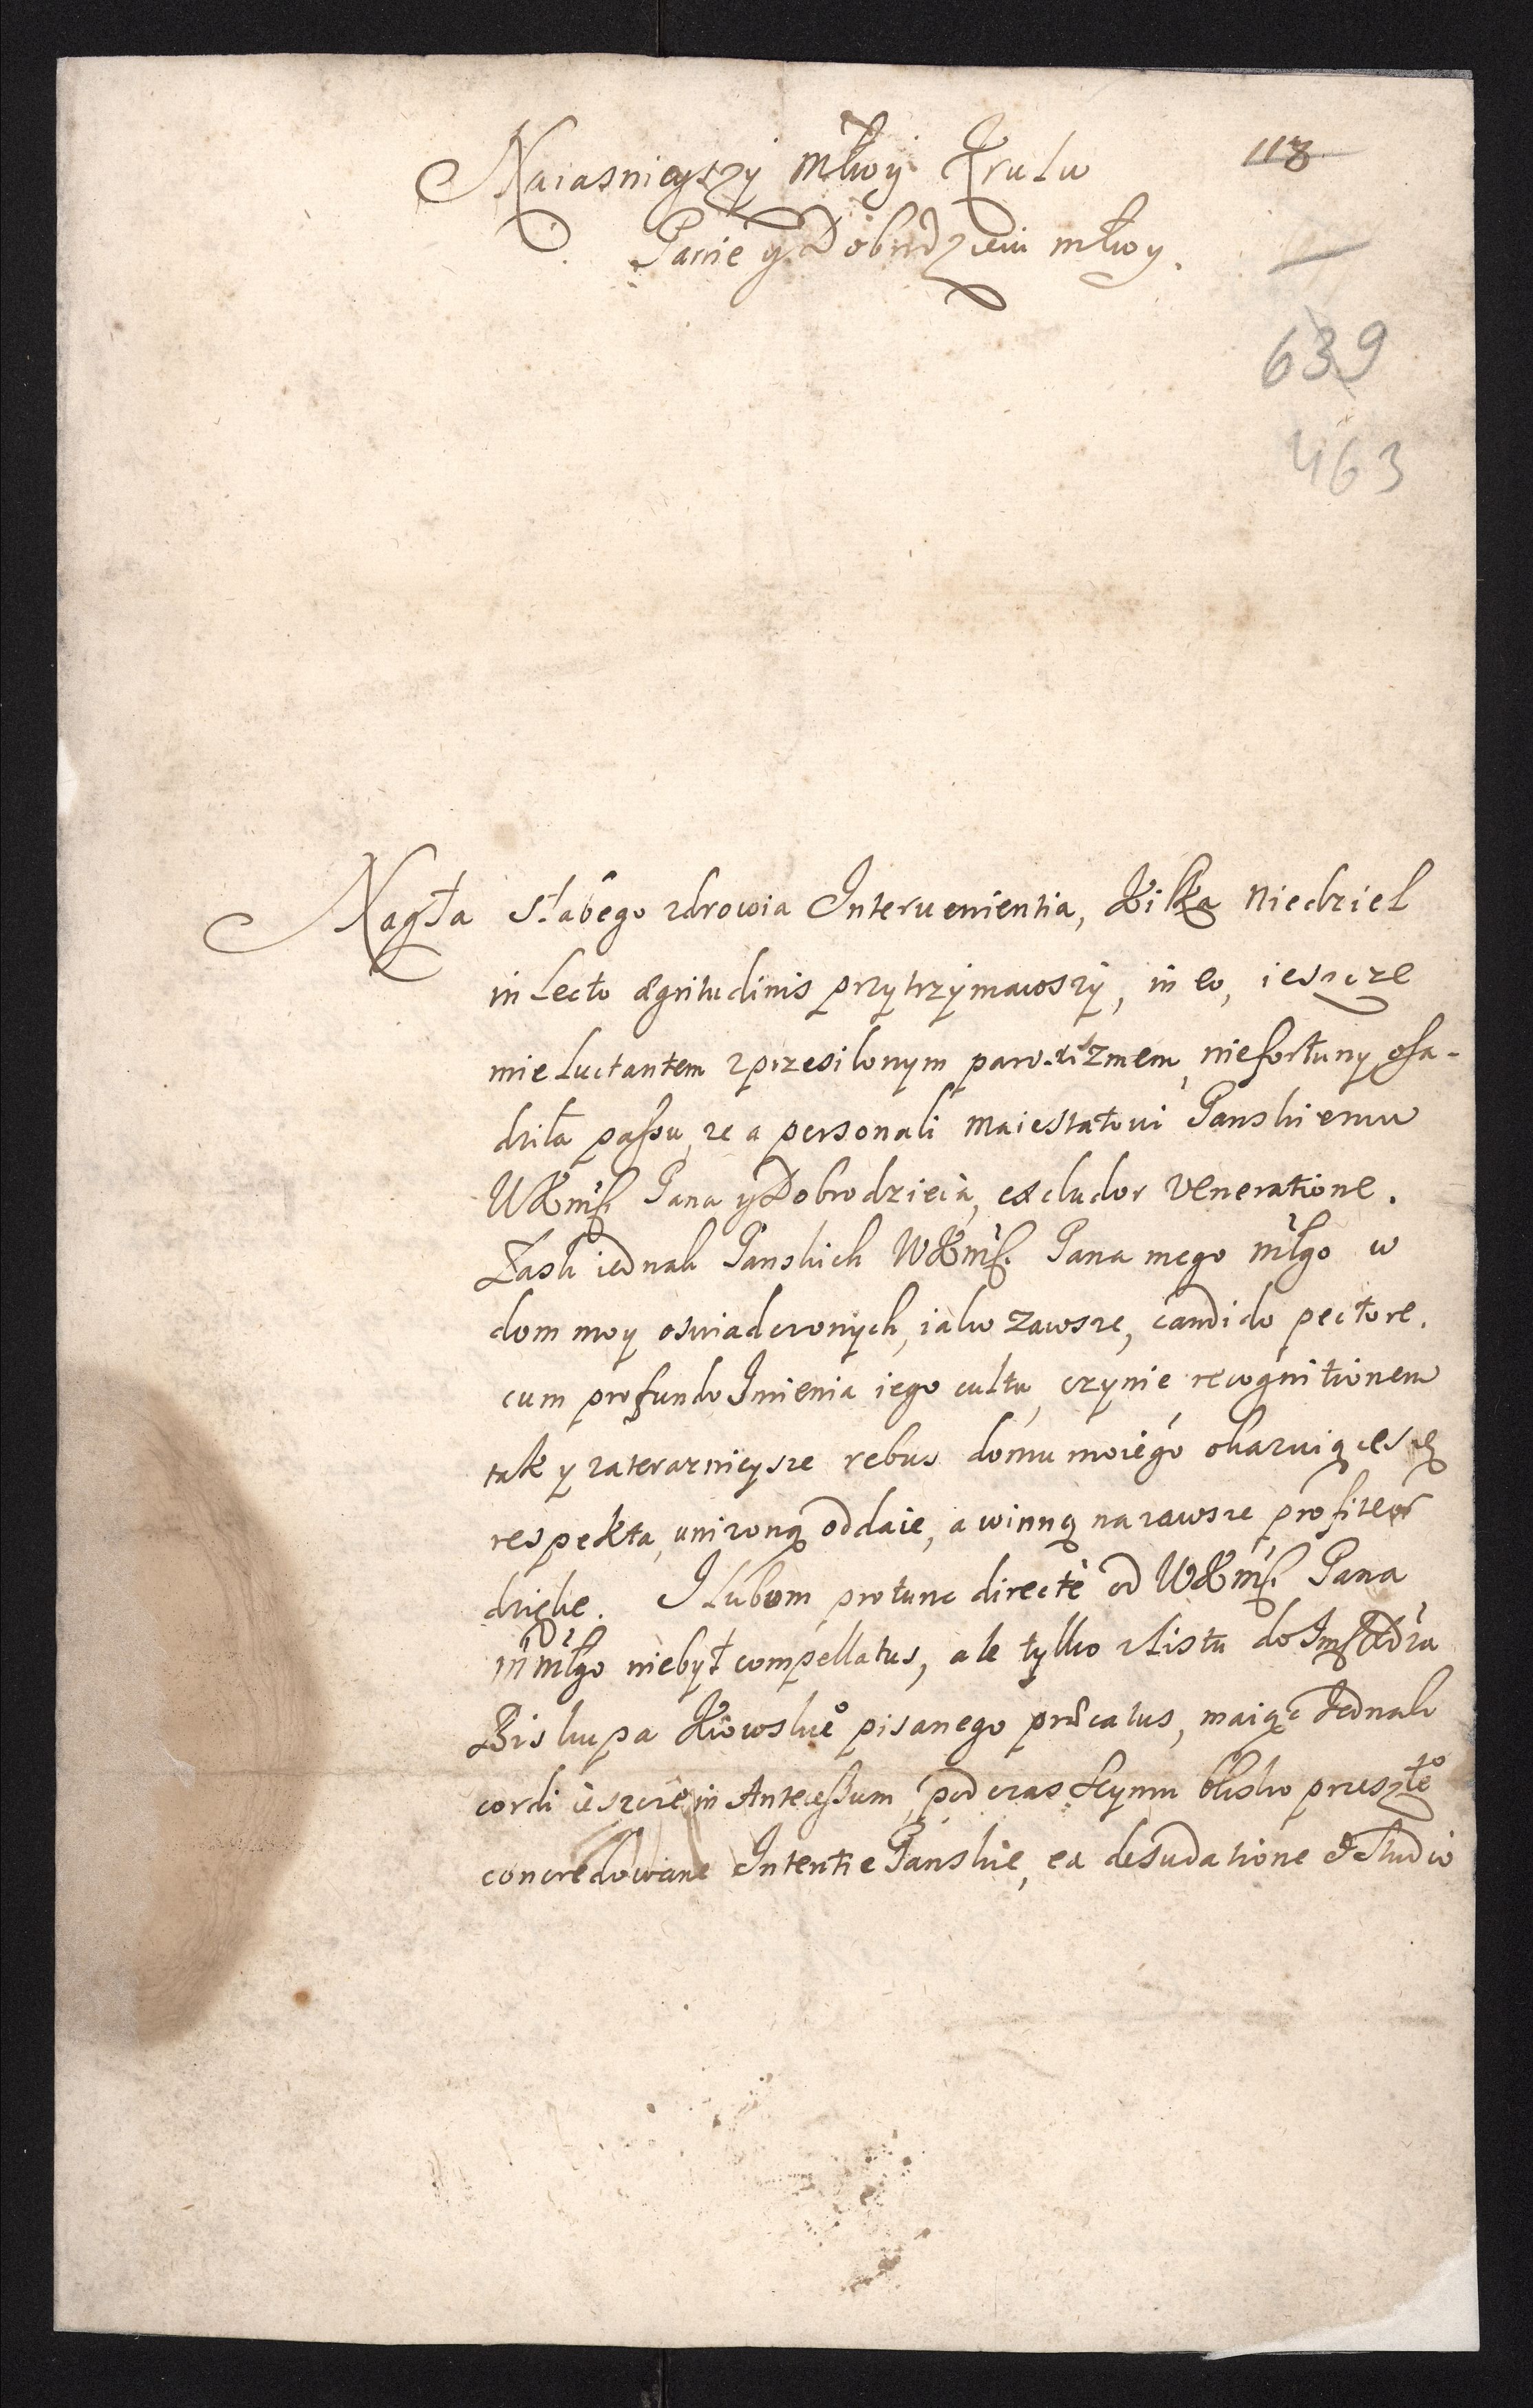 Naiasnieyszy Młwy Krulu
118
Panie y Dobrodzieiu młwy.
639
463
Nagła słabego zdrowia Interuenientia, Kilka Niedziel
in Lecto ægritudinis przytrzymawszy, in eo, ieszcze
mie luctantem zprzesilonym paroxizmem, niefortuny osa-
dziła passu, ze a personali Maiestatowi Panskiemu
WKmsci Pana y Dobrodzieia, excludor Veneratione.
Łask iednak Panskich WKmsci Pana mego młgo w
dom moy osWiadczonych, iako zawsze, candido pectore,
cum profundo Imienia iego cultu, czynie recognitionem
tak y zateraznieysze rebus domu moiego okazuiące się
respekta, unizoną oddaie, a winną nazawsze profiteor
dzięke. I lubom protunc directe od WKmsci Pana
m młgo niebył compellatus, ale tylko zListu do Imsci Xdza
Biskupa Kiiowskieo pisanego præcatus, maiąc Iednak
cordi ieszcze in Antecessum, pod czas Seymu blisko przeszłeo
concredowane Intentie Panskie, ea desudatione & studio